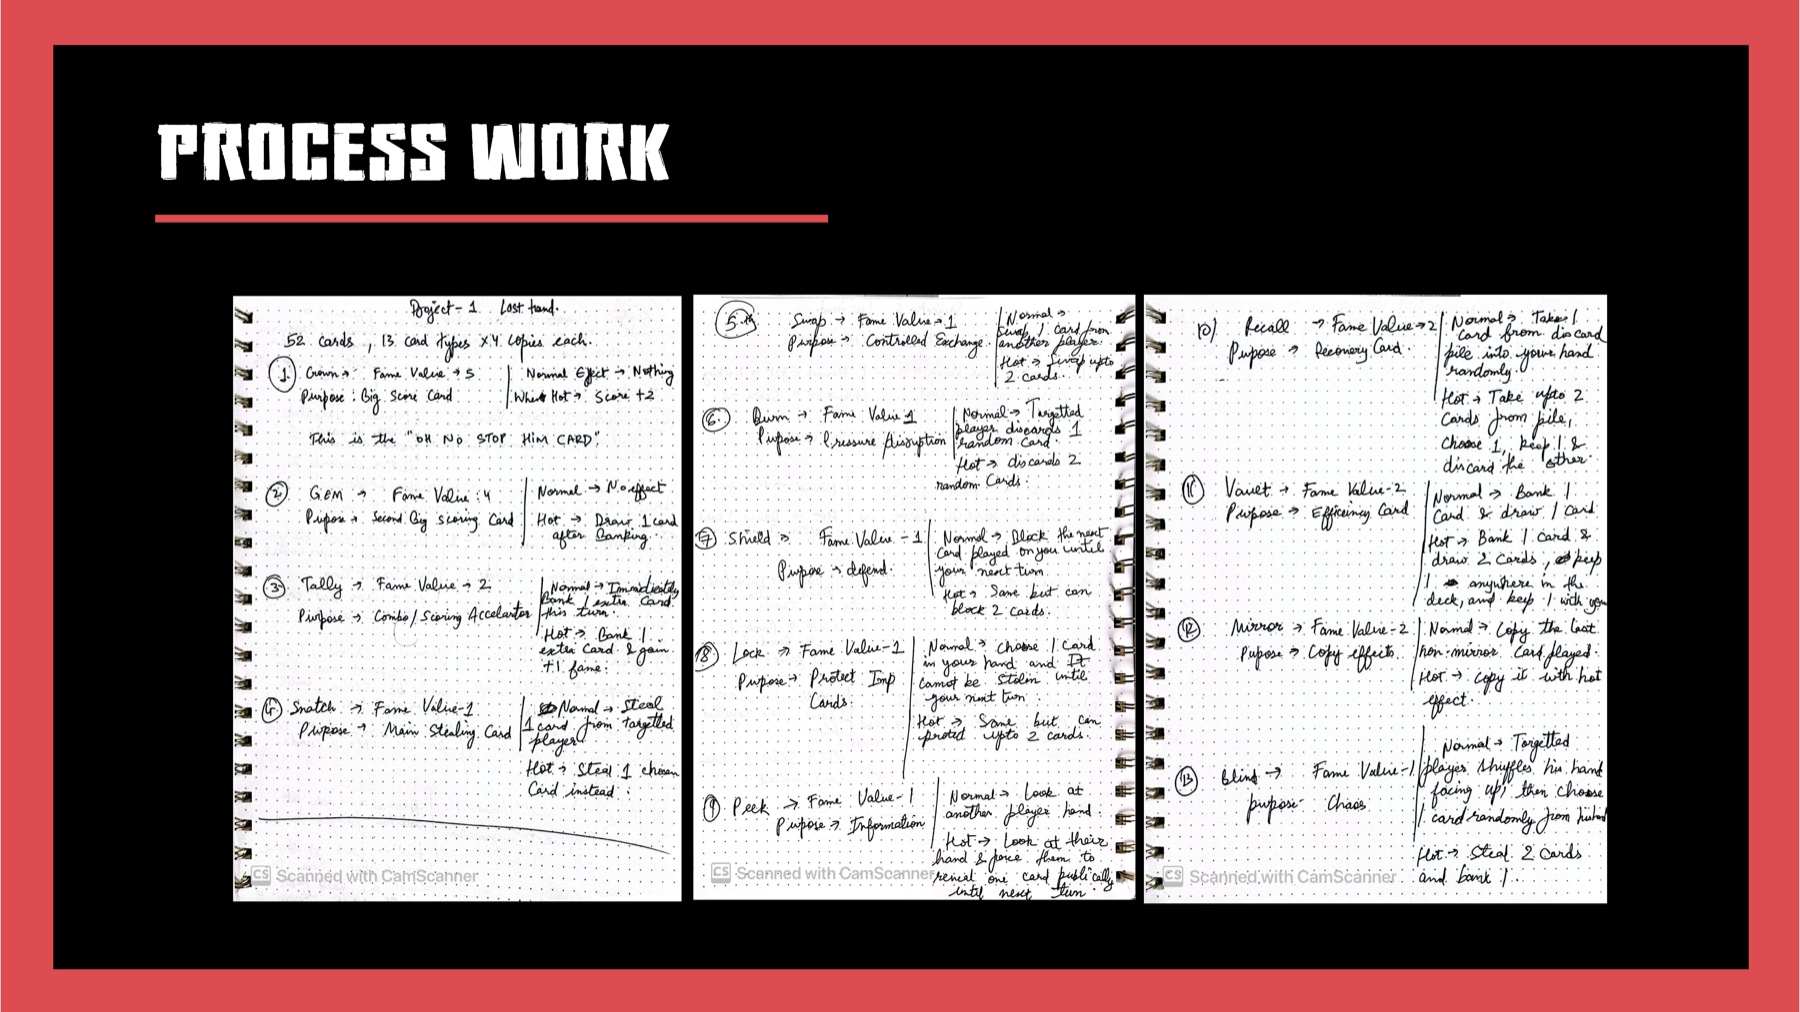 PROCESS WORK
Project - 1 Last hand.
52 cards, 13 card types x 4 copies each.
1. Crown → Fame Value → 5
Purpose: Big Score Card
Normal Effect → Nothing
When Hot → Score +2
This is the "OH NO STOP HIM CARD".
2 GEM → Fame Value : 4
Pupose → Second Big scoring Card
Normal → No effect
Hot → Draw 1 card
after Banking.
3 Tally → Fame Value → 2
Purpose → Combo / Scoring Accelartor
Normal → Immidiately
Bank 1 extra Card
this turn.
Hot → Bank 1
extra Card & gain
+1 fame.
4 Snatch → Fame Value - 1
Purpose → Main Stealing Card
Normal → Steal
1 card from targetted
player
Hot → Steal 1 chosen
Card instead.
CS Scanned with CamScanner
5. Swap → Fame Value → 1
Purpose → Controlled Exchange.
Normal →
Swap 1 card from
another player.
Hot → Swap upto
2 cards.
6. Burn → Fame Value 1
Purpose → Pressure disruption
Normal → Targetted
player discards 1
random card.
Hot → discards 2
random Cards.
7 Shield → Fame Value - 1
Purpose → defend.
Normal → Block the next
Card played on you until
your next turn.
Hot → Same but can
block 2 cards.
8 Lock → Fame Value - 1
Purpose → Protect Imp
Cards.
Normal → choose 1 Card
in your hand and It
cannot be stolen until
your next turn.
Hot → Same but can
protect upto 2 cards.
9 Peek → Fame Value - 1
Purpose → Information
Normal → Look at
another player hand.
Hot → Look at their
hand & force them to
reveal one card publically
until next turn
CS Scanned with CamScanner
10) Recall → Fame Value → 2
Pupose → Recovery Card.
Normal → Take 1
Card from discard
pile into your hand
randomly.
Hot → Take upto 2
Cards from pile,
choose 1, keep 1 &
discard the other.
11 Vault → Fame Value - 2
Purpose → Efficiency Card
Normal → Bank 1
Card & draw 1 Card
Hot → Bank 1 card &
draw 2 Cards, keep
1 anywhere in the
deck, and keep 1 with you
12 Mirror → Fame Value - 2
Pupose → Copy effects.
Normal → Copy the last
non-mirror Card played.
Hot → Copy it with hot
effect.
13 Blind → Fame Value - 1
purpose - Chaos
Normal → Targetted
player shuffles his hand
facing up, then choose
1 card randomly from
Hot → Steal 2 Cards
and bank 1.
CS Scanned with CamScanner